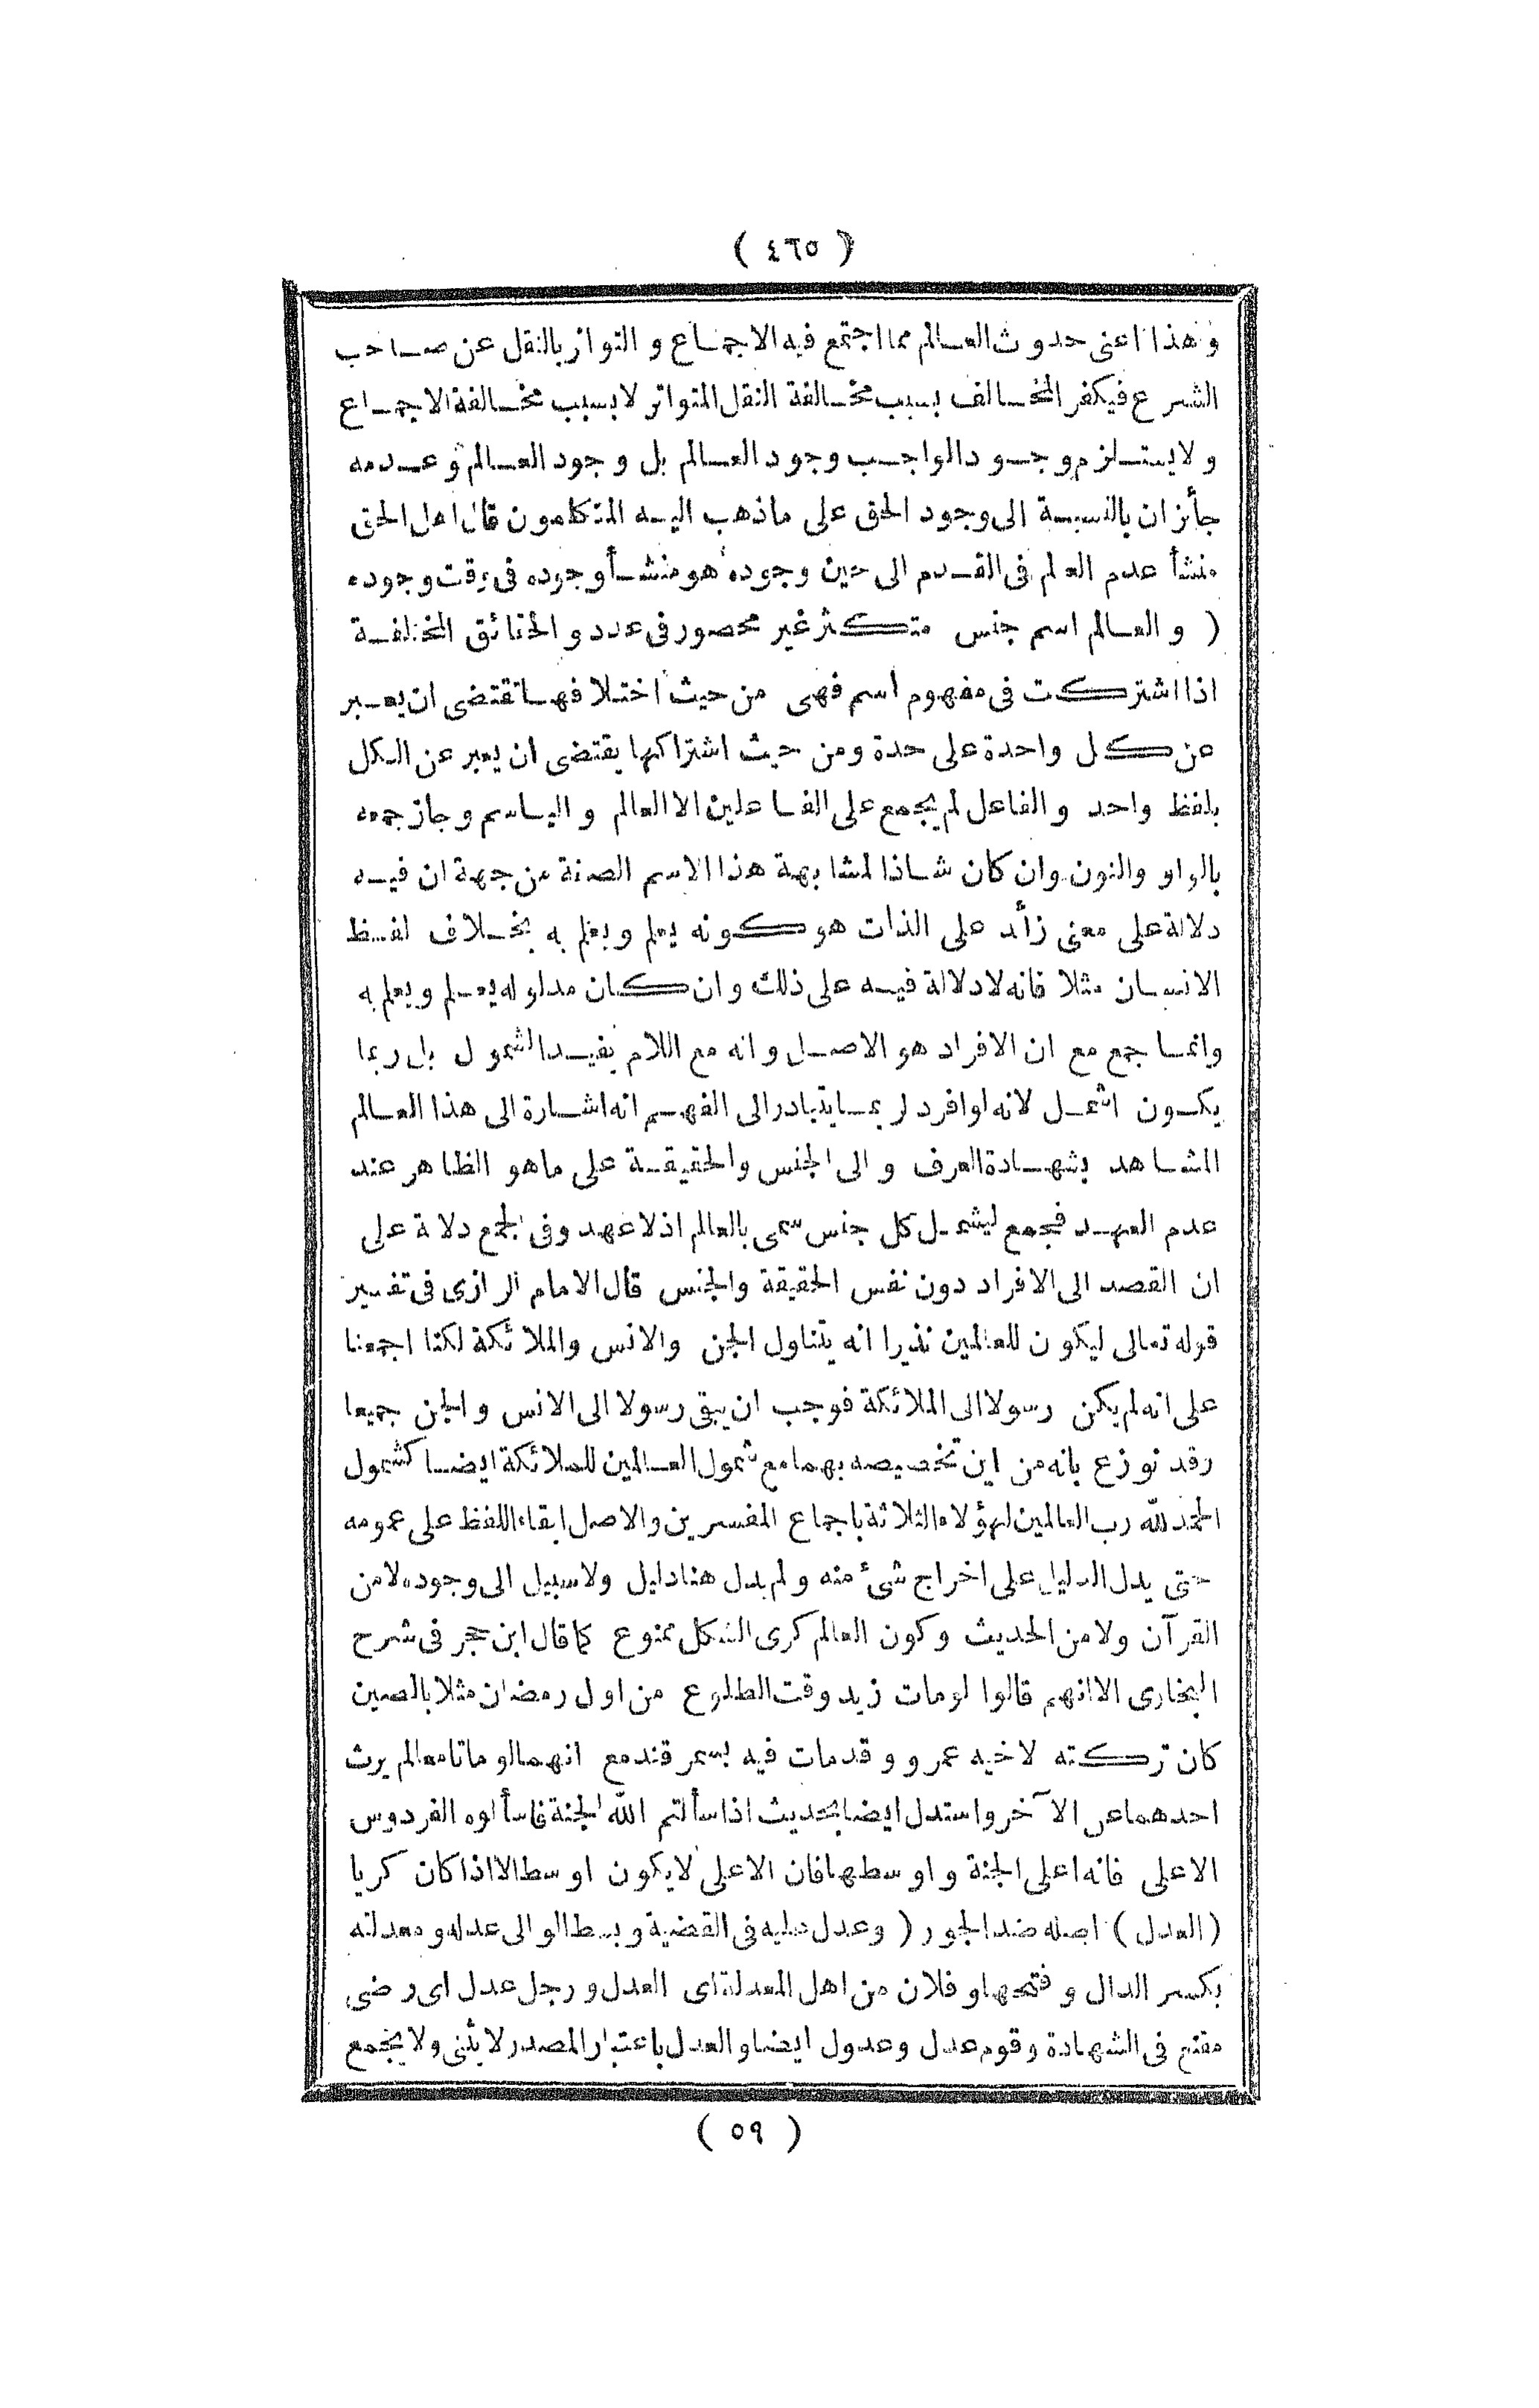 ( ٤٦٥ )
وهذا اعنى حدوث العالم مما اجتمع فيه الاجماع و التواتر بالنقل عن صاحب
الشرع فيكفر المخالف بسبب مخالفة النقل المتواتر لا بسبب مخالفة الاجماع
و لا يستلزم وجود الواجب وجود العالم بل وجود العالم و عدمه
جائزان بالنسبة الى وجود الحق على ماذهب اليه المتكلمون قال اهل الحق
منشأ عدم العالم فى القدم الى حين وجوده هو منشأ وجوده فى وقت وجوده
( و العالم اسم جنس متكثر غير محصور فى عدد و الحقائق المختلفة
اذا اشتركت فى مفهوم اسم فهى من حيث اختلافها تقتضى ان يعبر
عن كل واحدة على حدة ومن حيث اشتراكها يقتضى ان يعبر عن الكل
بلفظ واحد و الفاعل لم يجمع على الفاعلين الا العالم و الياسم و جاز جمعه
بالواو والنون وان كان شاذا لمشابهة هذا الاسم الصفة من جهة ان فيه
دلالة على معنى زائد على الذات هو كونه يعلم و يعلم به بخلاف لفظ
الانسان مثلا فانه لا دلالة فيه على ذلك و ان كان مدلوله يعلم و يعلم به
وانما جمع مع ان الافراد هو الاصل و انه مع اللام يفيد الشمول بل ربما
يكون اشمل لانه لو افرد لربما يتبادر الى الفهم انه اشارة الى هذا العالم
المشاهد بشهادة العرف و الى الجنس والحقيقة على ماهو الظاهر عند
عدم العهد فجمع ليشمل كل جنس سمى بالعالم اذ لا عهد وفى الجمع دلالة على
ان القصد الى الافراد دون نفس الحقيقة والجنس قال الامام الرازى فى تفسير
قوله تعالى ليكون للعالمين نذيرا انه يتناول الجن والانس والملائكة لكنا اجمعنا
على انه لم يكن رسولا الى الملائكة فوجب ان يبقى رسولا الى الانس و الجن جميعا
وقد نوزع بانه من اين تخصيصه بهما مع شمول العالمين للملائكة ايضا كشمول
الحمد لله رب العالمين لهؤلاء الثلاثة باجماع المفسرين والاصل ابقاء اللفظ على عمومه
حتى يدل الدليل على اخراج شئ منه و لم يدل هنا دليل ولا سبيل الى وجوده لا من
القرآن ولا من الحديث وكون العالم كرى الشكل ممنوع كما قال ابن حجر فى شرح
البخارى الا انهم قالوا لو مات زيد وقت الطلوع من اول رمضان مثلا بالصين
كان تركته لاخيه عمرو و قد مات فيه بسمرقند مع انهما لو ماتا معا لم يرث
احدهما عن الآخر واستدل ايضا بحديث اذا سألتم الله الجنة فاسألوه الفردوس
الاعلى فانه اعلى الجنة و اوسطها فان الاعلى لا يكون اوسط الا اذا كان كريا
( العدل ) اصله ضد الجور ( وعدل عليه فى القضية و بسط الوالى عدله و معدلته
بكسر الدال و فتحها و فلان من اهل المعدلة اى العدل و رجل عدل اى رضى
مقنع فى الشهادة وقوم عدل وعدول ايضا و العدل باعتبار المصدر لا يثنى ولا يجمع
( ٥٩ )